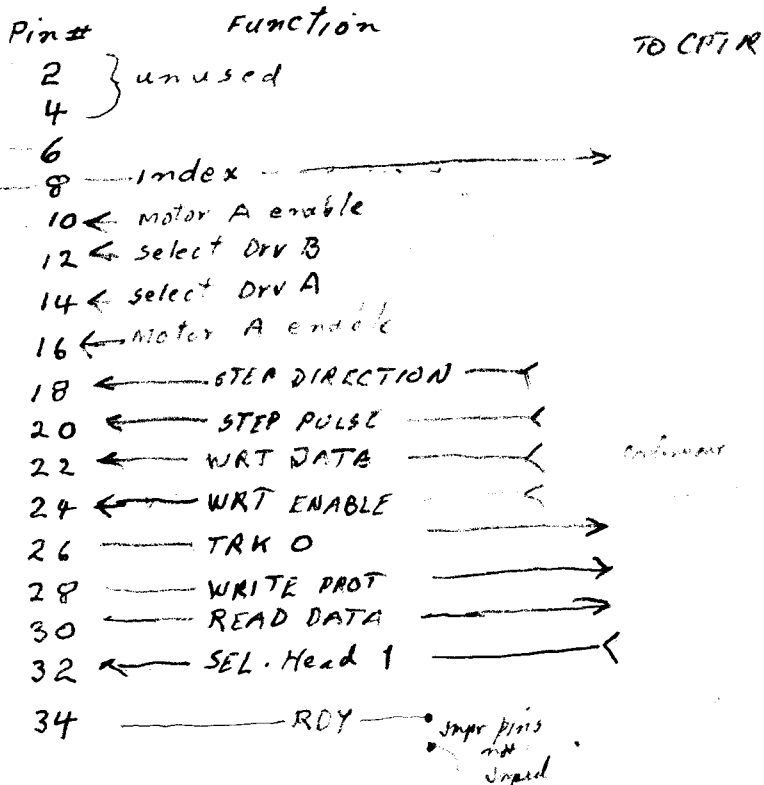 Pin # Function TO CPTR
2 } unused
4
6
8 Index
10 Motor A enable
12 Select Drv B
14 Select Drv A
16 Motor A enable
18 STEP DIRECTION
20 STEP PULSE
22 WRT DATA
24 WRT ENABLE
26 TRK 0
28 WRITE PROT
30 READ DATA
32 SEL. Head 1
34 RDY
Jmpr pins
not
Jmped